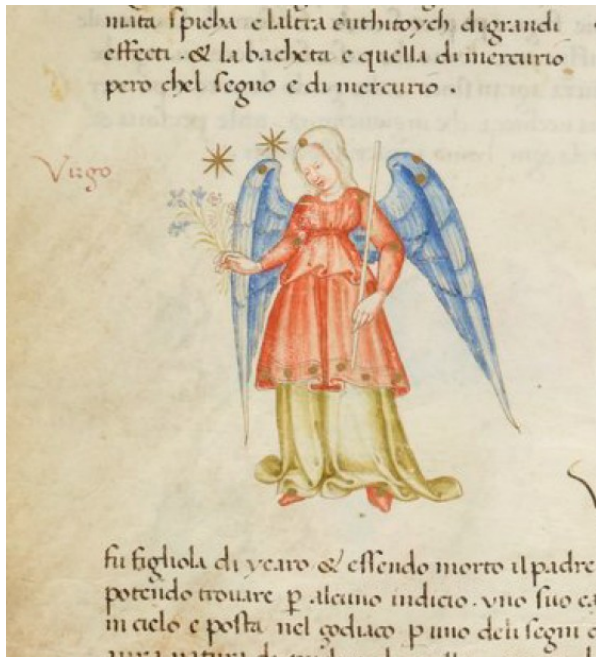 mata spicha e laltra outhitoych di grandi
effecti . & la bacheta e quella di mercurio
pero chel segno e di mercurio .
Virgo
fu figliola di ycaro & essendo morto il padre
potendo trouare p alcuno indicio . vno suo ca
in cielo e posta nel zodiaco p uno deli segni